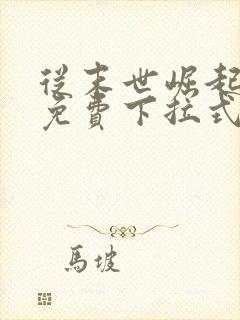 從末世崛起
免費下拉式
馬坡